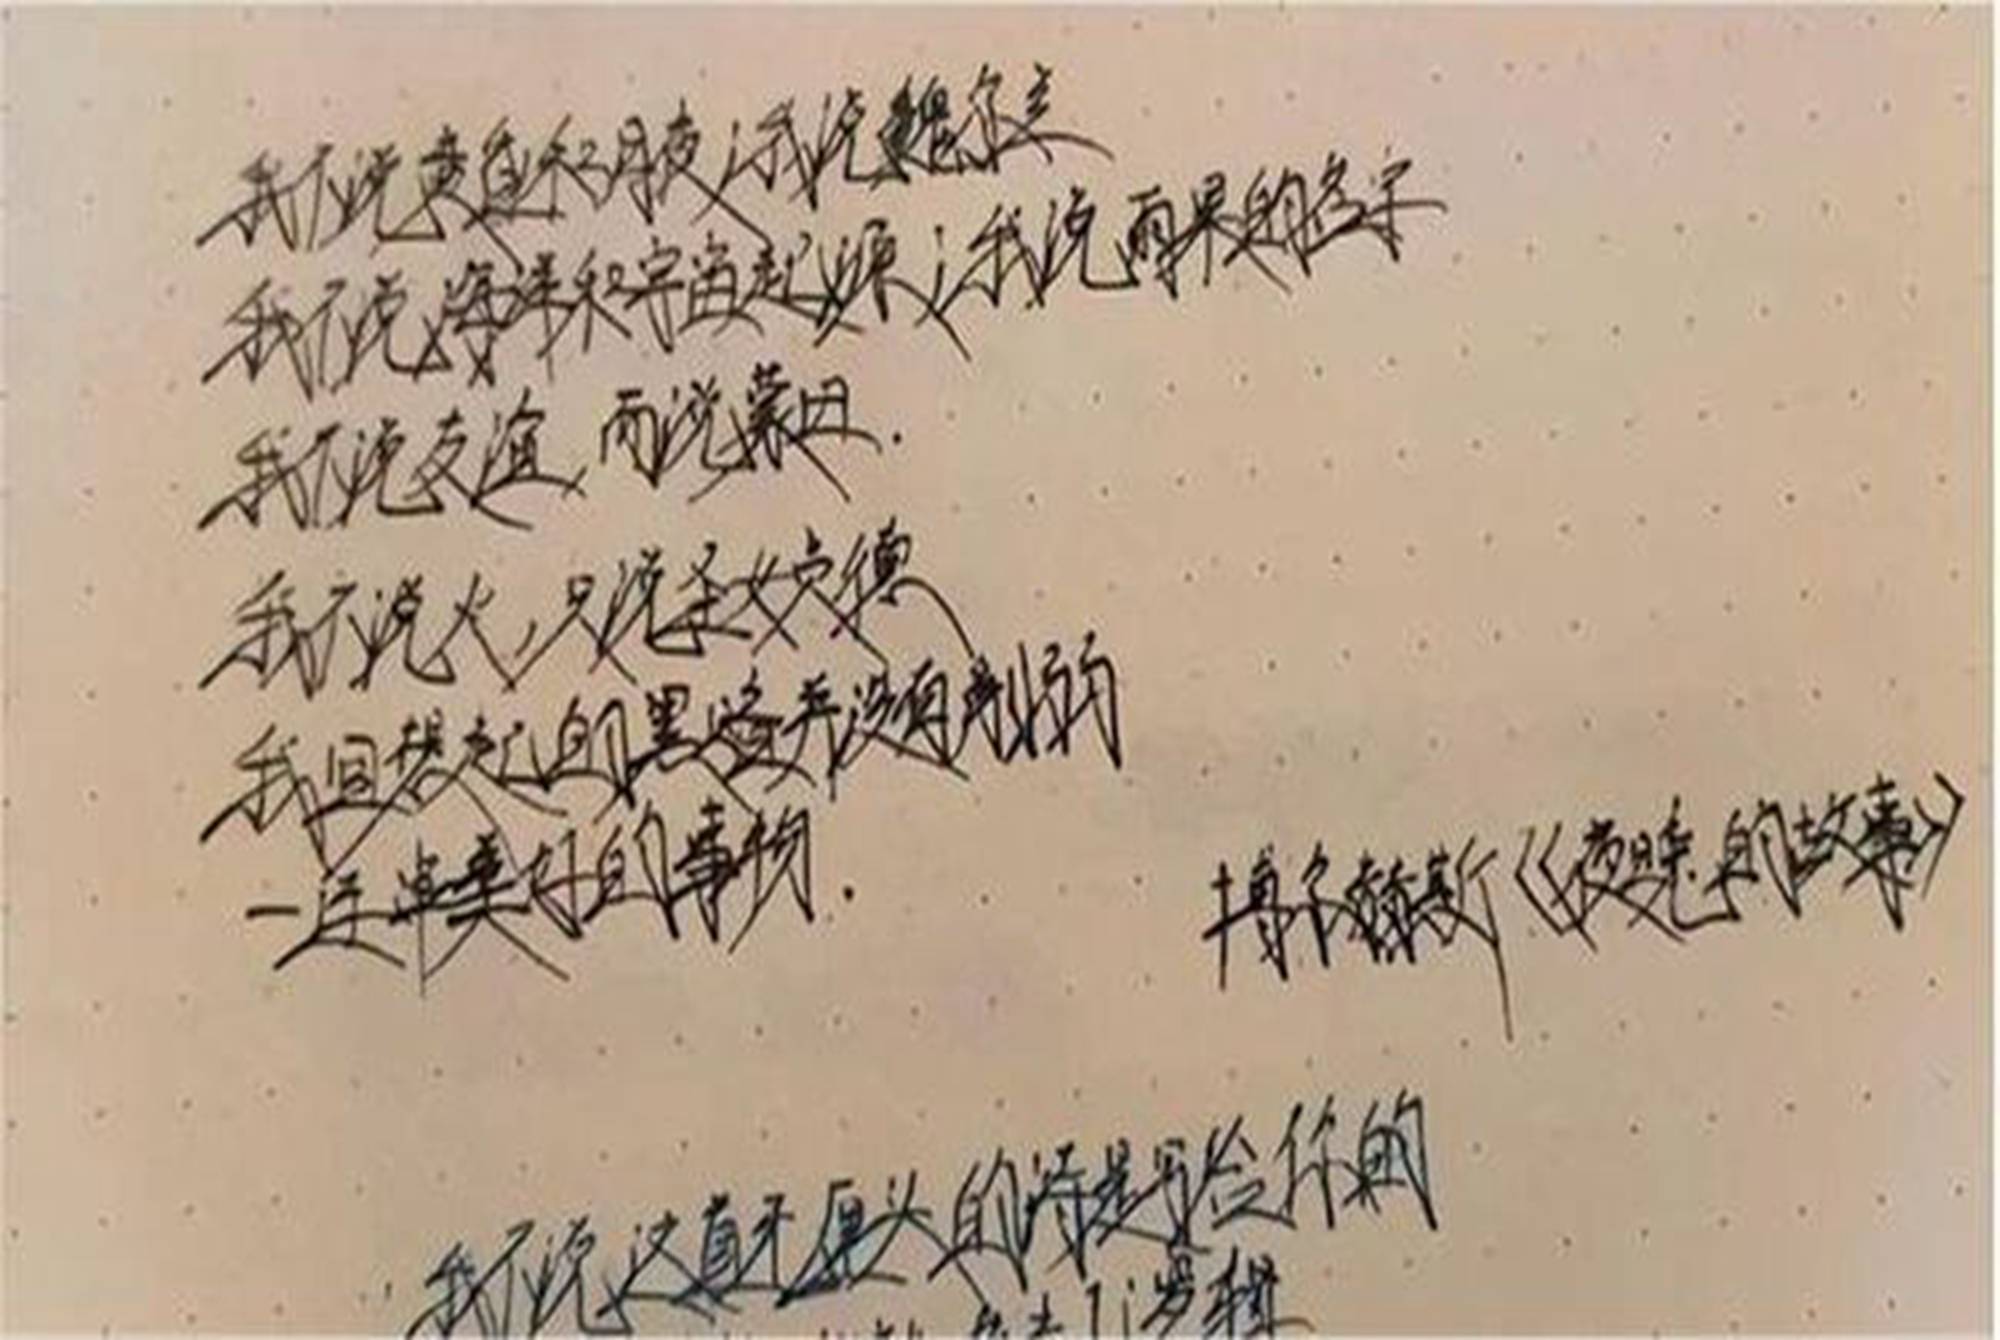 我不说黄昏和月夜；我说魏尔兰
我不说海洋和宇宙起源；我说雨果的名字
我不说友谊，而说蒙田.
我不说火，只说圣女贞德
我回想起的黑暗并没有削弱
一连串美好的事物.
博尔赫斯《夜晚的故事》
我不说这首没头的诗是写给你的
罗辑